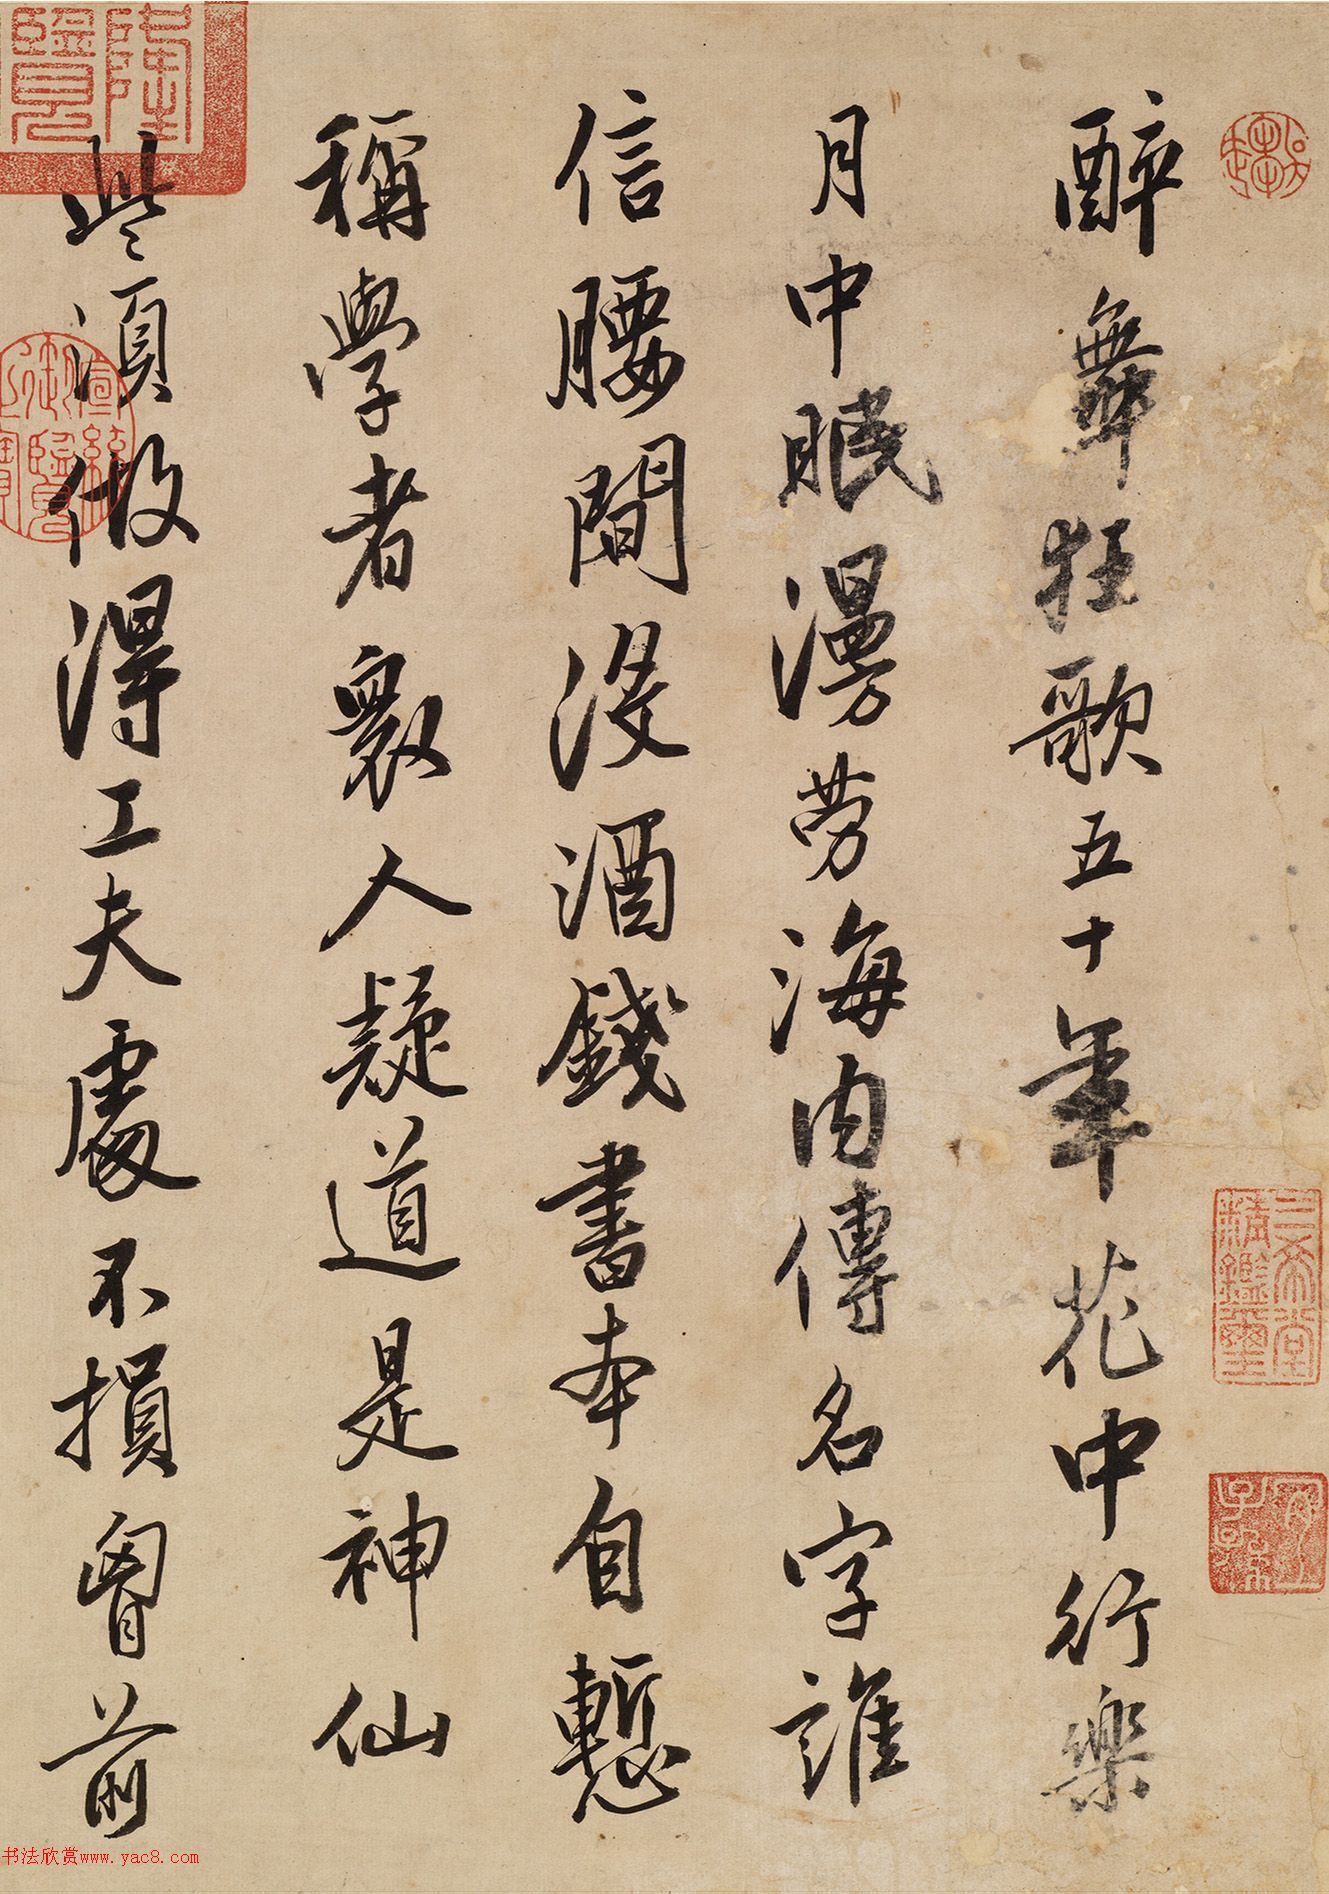 醉舞狂歌五十年花中行樂
月中眠漫勞海内傳名字誰
信腰間沒酒錢書本自慙
稱學者衆人疑道是神仙
些須做得工夫處不損胷前
三希堂
精鑑璽
宜子孫
書法欣赏www.yac8.com